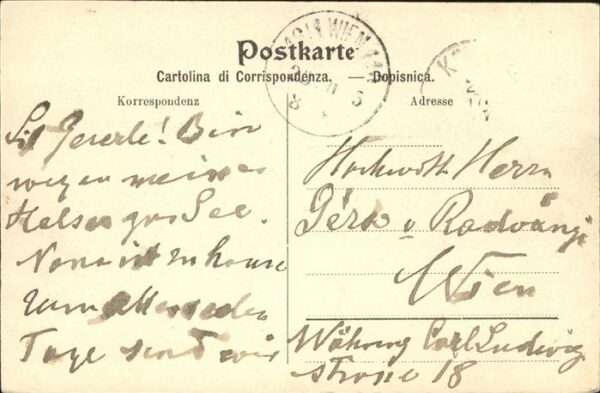 Postkarte
Cartolina di Corrispondenza. — Dopisnica.
Korrespondenz
Adresse
WIEN
Bin
wegen meines
Halses zur See.
Nona ist zu hause
Tage sind wir
Hochwohl. Herrn
v Radványi
Wien
Währing Carl Ludwig
strasse 18